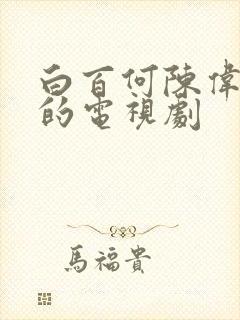 白百何陳偉
的電視劇
馬福貴